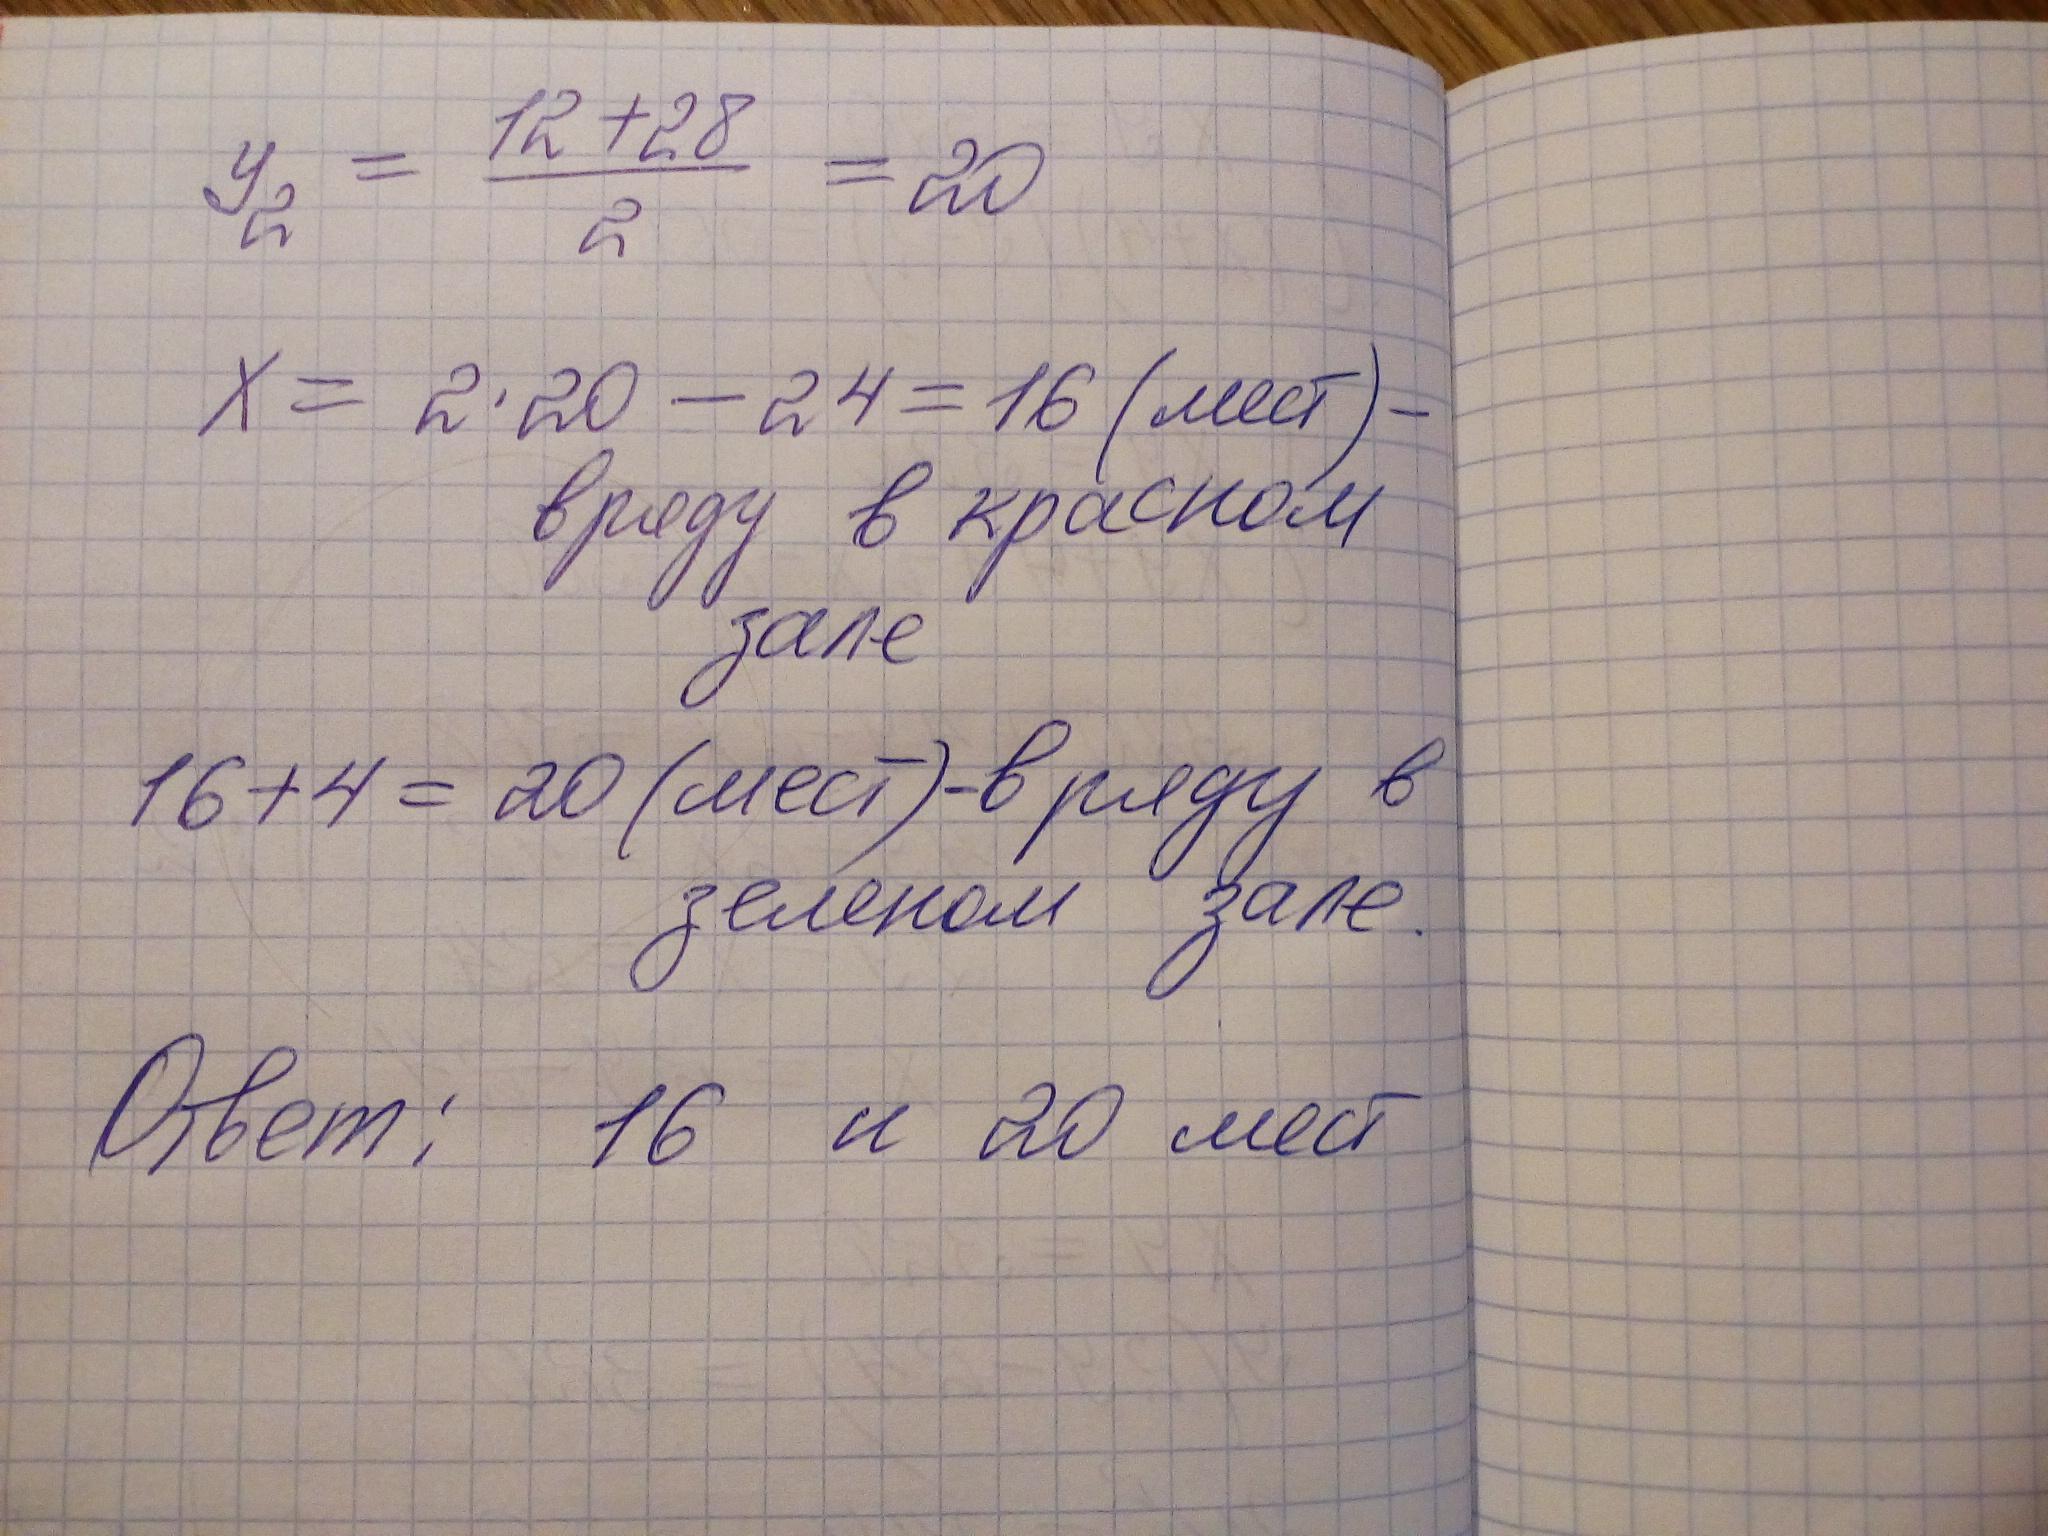 y₂ = (12+28)/2 = 20
x = 2·20 − 24 = 16 (мест) −
в ряду в красном
зале
16+4 = 20 (мест) - в ряду в
зеленом зале.
Ответ: 16 и 20 мест